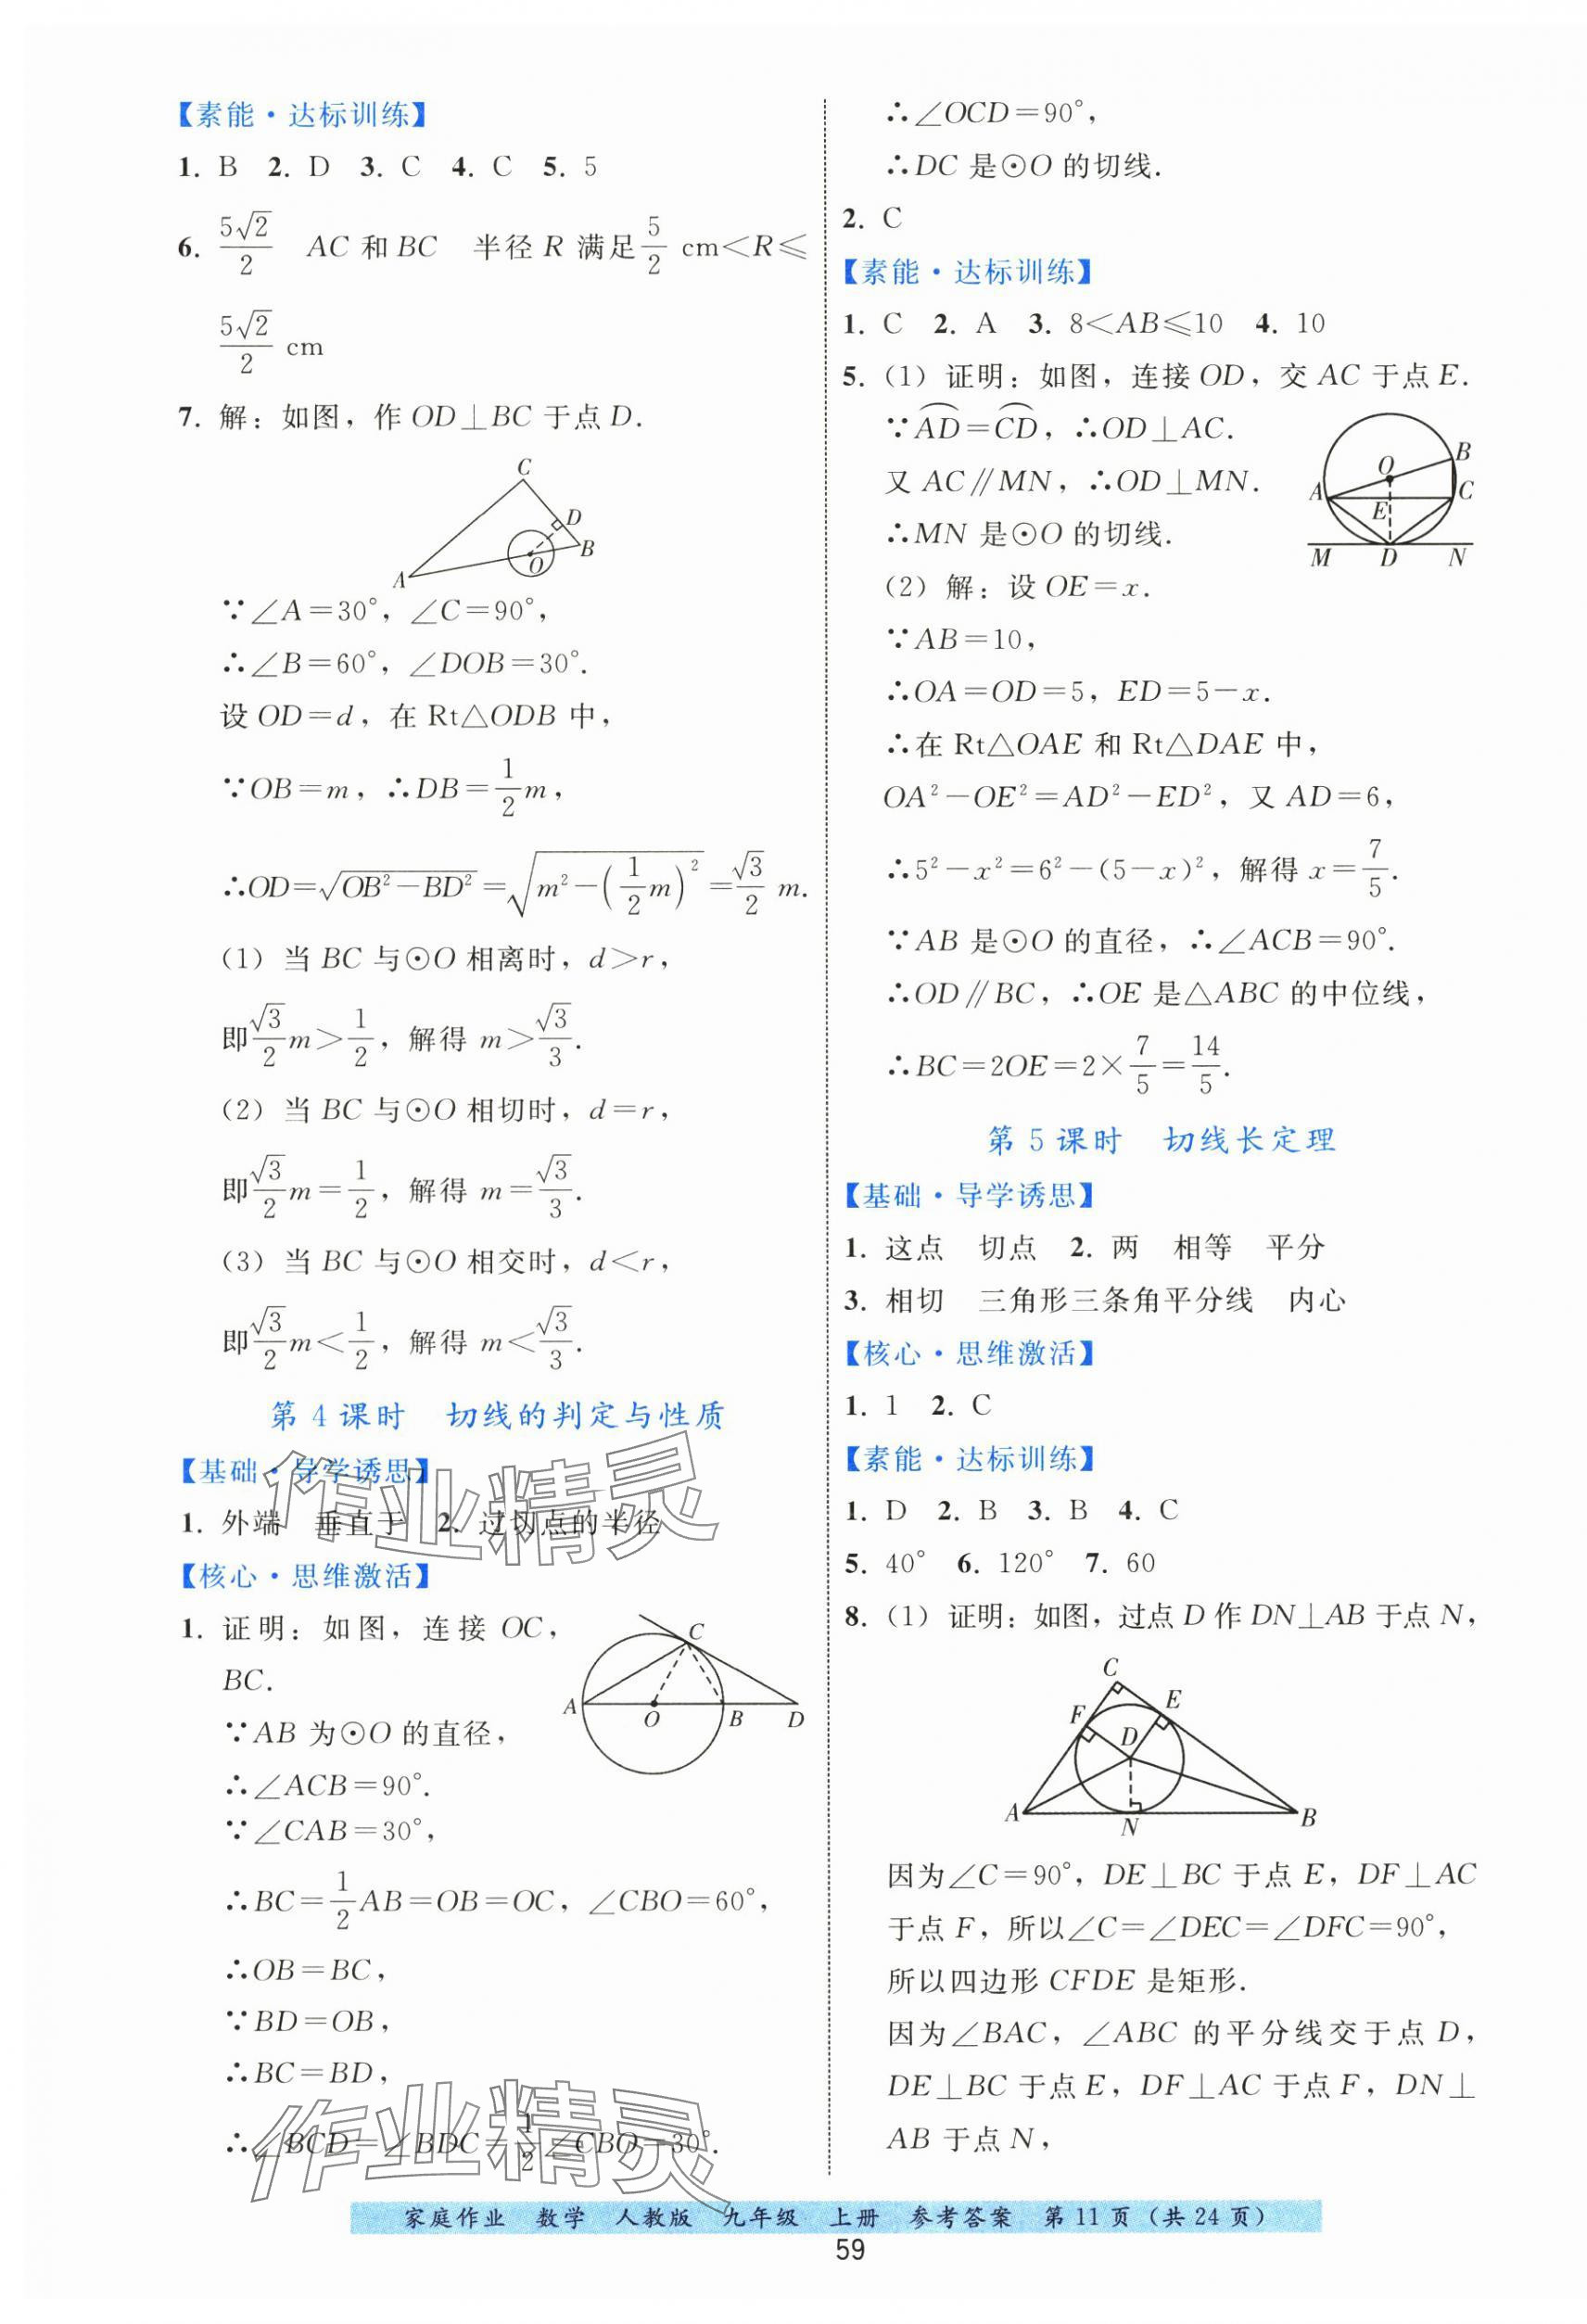 【素能·达标训练】
1. B 2. D 3. C 4. C 5. 5
6. 5√2/2 AC 和 BC 半径 R 满足 5/2 cm<R≤
5√2/2 cm
7. 解：如图，作 OD⊥BC 于点 D.
C
D
B
O
A
∵∠A=30°，∠C=90°，
∴∠B=60°，∠DOB=30°.
设 OD=d，在 Rt△ODB 中，
∵OB=m，∴DB=1/2 m，
∴OD=√(OB²-BD²)=√(m²-(1/2 m)²)=√3/2 m.
(1) 当 BC 与⊙O 相离时，d>r，
即 √3/2 m>1/2，解得 m>√3/3.
(2) 当 BC 与⊙O 相切时，d=r，
即 √3/2 m=1/2，解得 m=√3/3.
(3) 当 BC 与⊙O 相交时，d<r，
即 √3/2 m<1/2，解得 m<√3/3.
第 4 课时 切线的判定与性质
【基础·导学诱思】
1. 外端 垂直于 2. 过切点的半径
【核心·思维激活】
1. 证明：如图，连接 OC，
BC.
C
A O B D
∵AB 为⊙O 的直径，
∴∠ACB=90°.
∵∠CAB=30°，
∴BC=1/2 AB=OB=OC，∠CBO=60°，
∴OB=BC，
∵BD=OB，
∴BC=BD，
∴∠BCD=∠BDC=1/2∠CBO=30°.
∴∠OCD=90°，
∴DC 是⊙O 的切线.
2. C
【素能·达标训练】
1. C 2. A 3. 8<AB≤10 4. 10
5. (1) 证明：如图，连接 OD，交 AC 于点 E.
∵A͡D=C͡D，∴OD⊥AC.
又 AC∥MN，∴OD⊥MN.
∴MN 是⊙O 的切线.
O B
A E C
M D N
(2) 解：设 OE=x.
∵AB=10，
∴OA=OD=5，ED=5-x.
∴在 Rt△OAE 和 Rt△DAE 中，
OA²-OE²=AD²-ED²，又 AD=6，
∴5²-x²=6²-(5-x)²，解得 x=7/5.
∵AB 是⊙O 的直径，∴∠ACB=90°.
∴OD∥BC，∴OE 是△ABC 的中位线，
∴BC=2OE=2×7/5=14/5.
第 5 课时 切线长定理
【基础·导学诱思】
1. 这点 切点 2. 两 相等 平分
3. 相切 三角形三条角平分线 内心
【核心·思维激活】
1. 1 2. C
【素能·达标训练】
1. D 2. B 3. B 4. C
5. 40° 6. 120° 7. 60
8. (1) 证明：如图，过点 D 作 DN⊥AB 于点 N，
C
F E
D
A N B
因为∠C=90°，DE⊥BC 于点 E，DF⊥AC
于点 F，所以∠C=∠DEC=∠DFC=90°，
所以四边形 CFDE 是矩形.
因为∠BAC，∠ABC 的平分线交于点 D，
DE⊥BC 于点 E，DF⊥AC 于点 F，DN⊥
AB 于点 N，
作业精灵
作业精灵
家庭作业 数学 人教版 九年级 上册 参考答案 第 11 页（共 24 页）
59